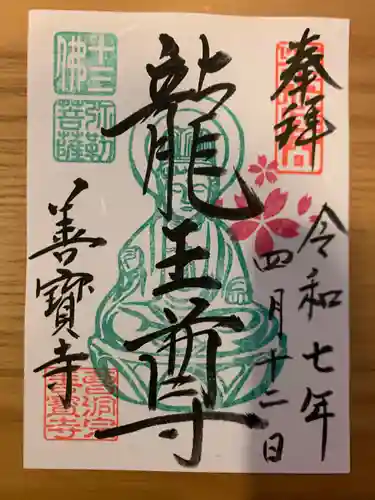 奉拝
令和七年
四月十二日
龍王尊
善寳寺
十三佛
弥勒菩薩
曹洞宗
善寳寺